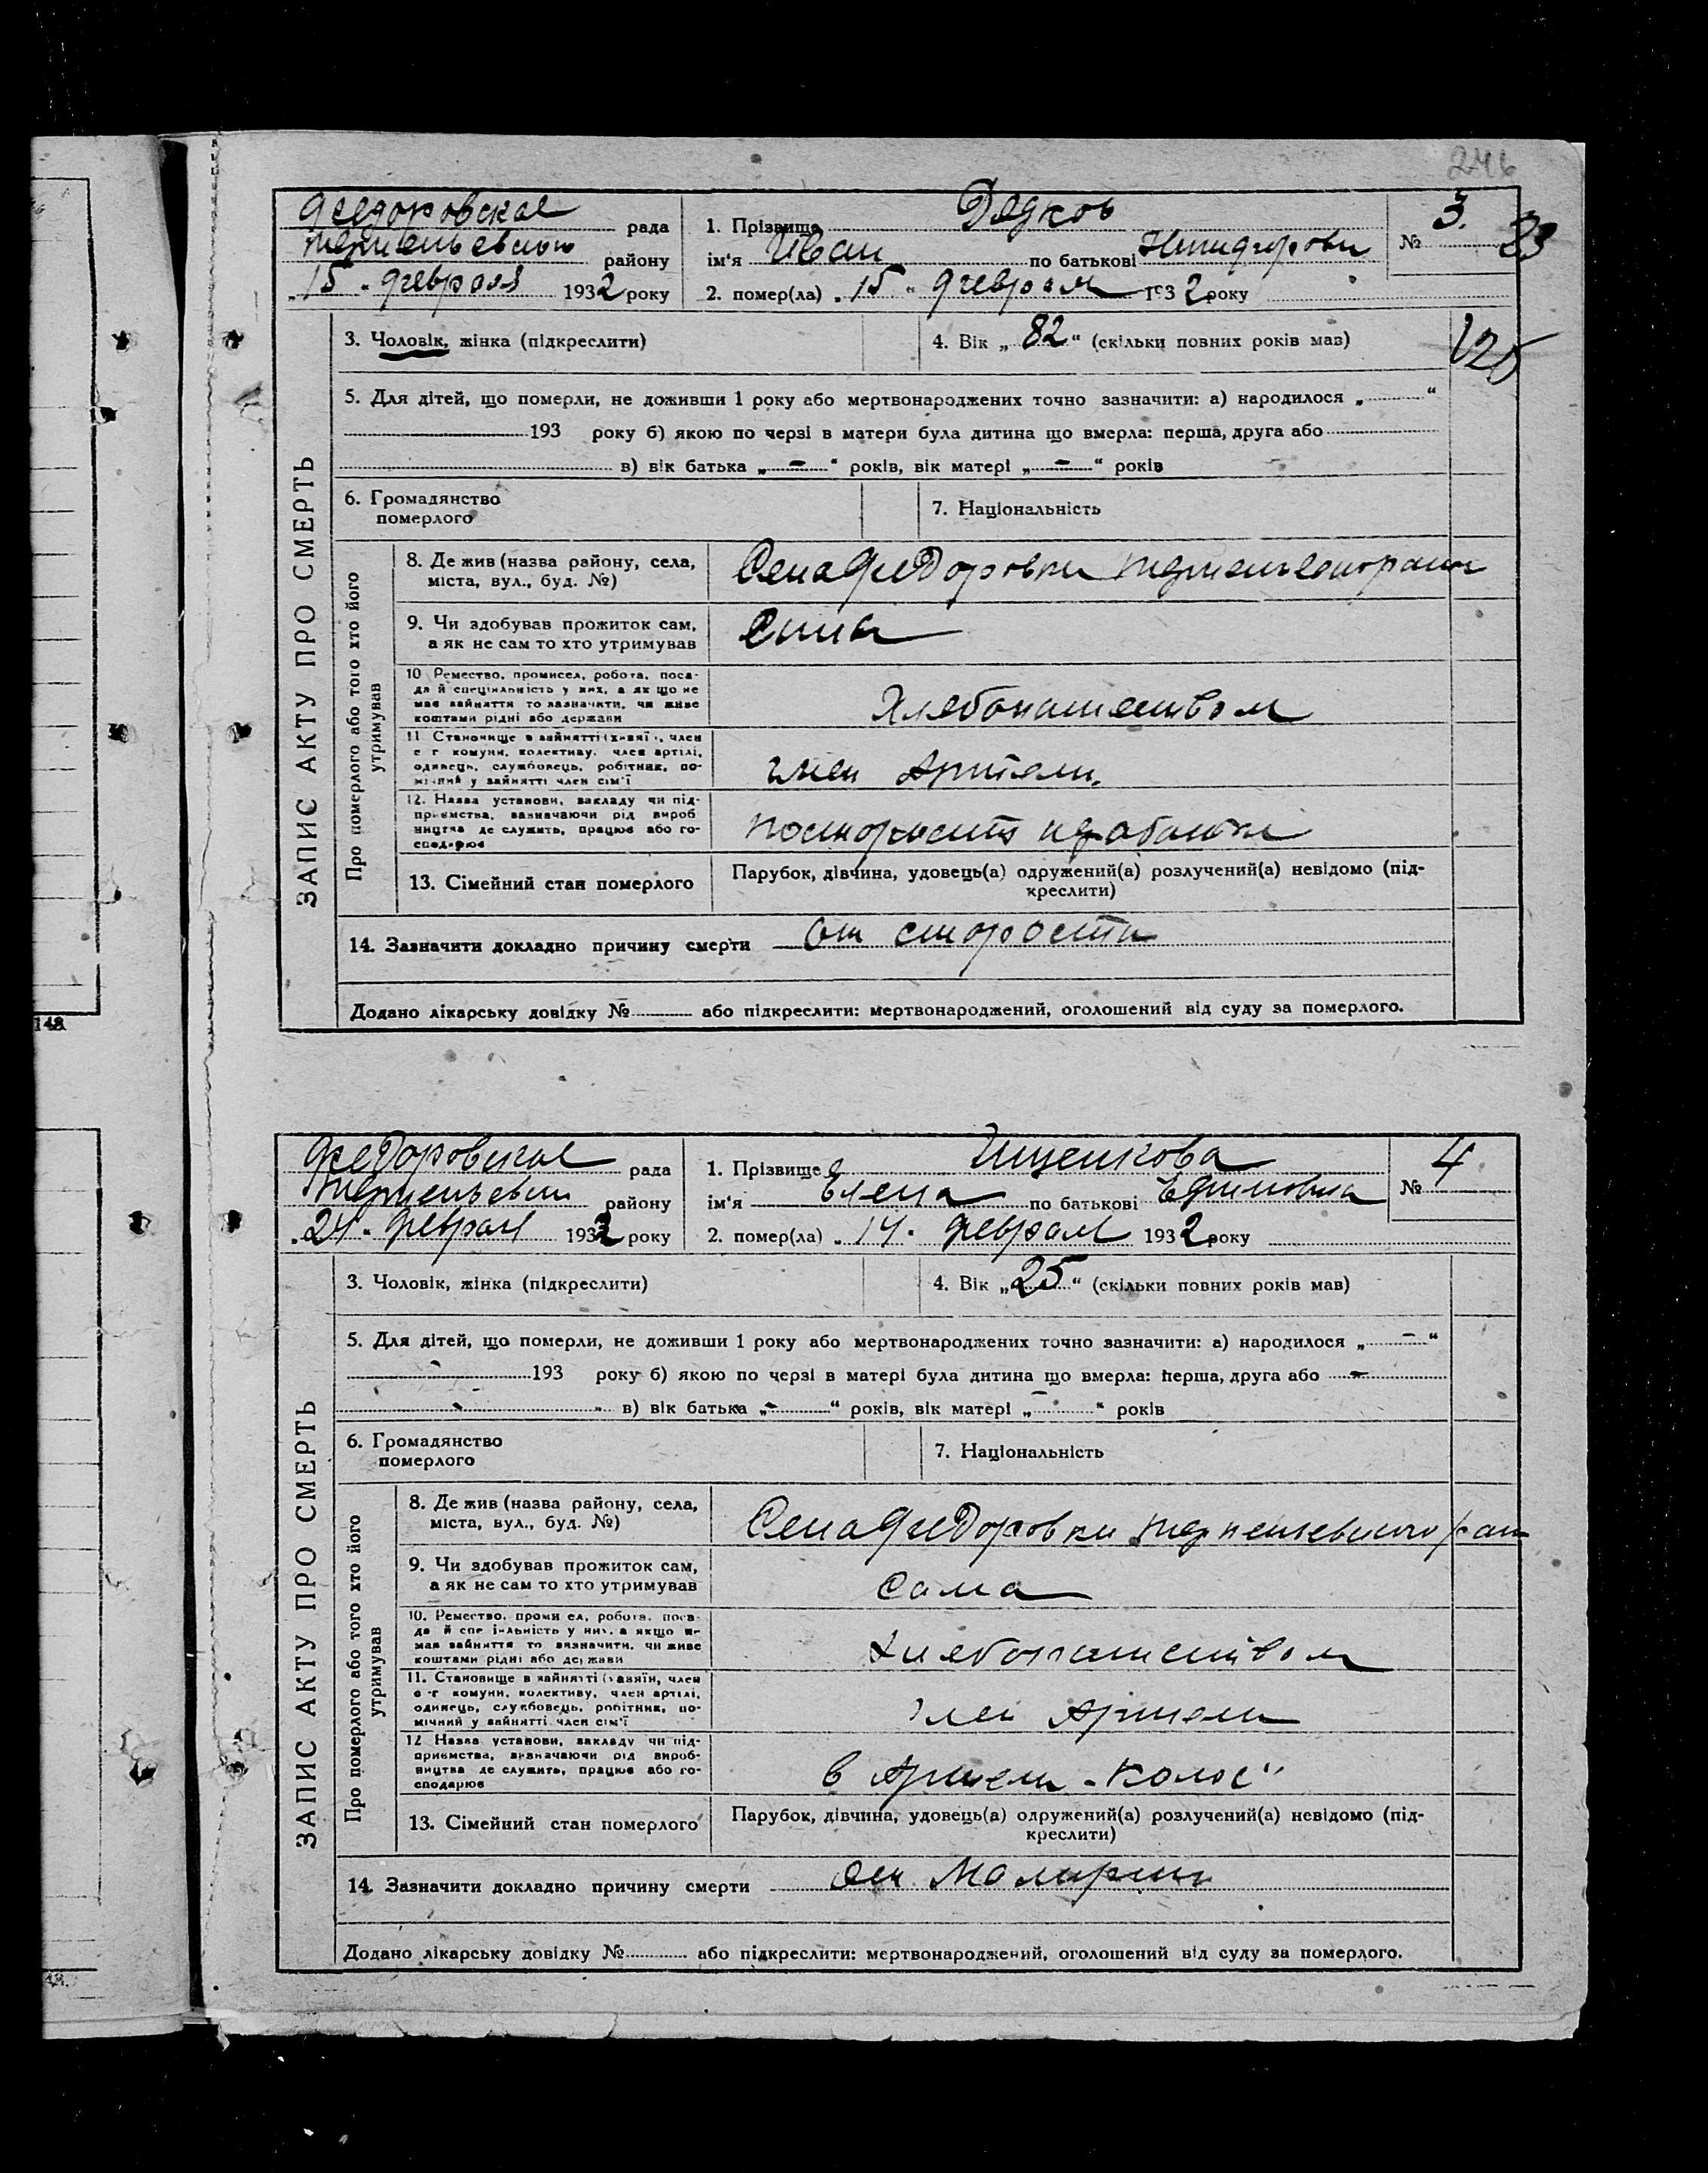 246
Федоровское рада
району
„15“ февраля 1932 року
1. Прізвище Дядков
ім'я Иван по батькові
№ 3.
33
2. помер(ла) „15“ февраля 1932 року
ЗАПИС АКТУ ПРО СМЕРТЬ
3. Чоловік, жінка (підкреслити)
4. Вік „82“ (скільки повних років мав)
125
5. Для дітей, що померли, не доживши 1 року або мертвонароджених точно зазначити: а) народилося „ “
193 року б) якою по черзі в матери була дитина що вмерла: перша, друга або
в) вік батька „ – “ років, вік матері „ – “ років
6. Громадянство
померлого
7. Національність
Про померлого або того хто його
утримував
8. Де жив (назва району, села,
міста, вул., буд. №)
Села Федоровки
9. Чи здобував прожиток сам,
а як не сам то хто утримував
10 Ремество, промисел, робота, поса-
да й спеціяльність у них, а як що не
має зайняття то зазначити, чи живе
коштами рідні або держави
Хлебопашеством
11 Становище в зайнятті (хазяїн, член
с-г комуни, колективу, член артілі,
одинець, службовець, робітник, по-
мічний у зайнятті член сім'ї
член Артели.
12. Назва установи, закладу чи під-
приємства, зазначаючи рід вироб
ництва де служить, працює або го-
сподарює
13. Сімейний стан померлого
Парубок, дівчина, удовець(а) одружений(а) розлучений(а) невідомо (під-
креслити)
14. Зазначити докладно причину смерти от старости
Додано лікарську довідку № або підкреслити: мертвонароджений, оголошений від суду за померлого.
148.
Федоровское рада
району
„24“ февраля 1932 року
1. Прізвище Ищенкова
ім'я Елена по батькові Ефимовна
№ 4
2. помер(ла) „14“ февраля 1932 року
ЗАПИС АКТУ ПРО СМЕРТЬ
3. Чоловік, жінка (підкреслити)
4. Вік „25“ (скільки повних років мав)
5. Для дітей, що померли, не доживши 1 року або мертвонароджених точно зазначити: а) народилося „ – “
193 року б) якою по черзі в матері була дитина що вмерла: перша, друга або –
в) вік батька „ – “ років, вік матері „ – “ років
6. Громадянство
померлого
7. Національність
Про померлого або того хто його
утримував
8. Де жив (назва району, села,
міста, вул., буд. №)
Села Федоровки
9. Чи здобував прожиток сам,
а як не сам то хто утримував
Сама
10. Ремество, промисел, робота, поса-
да й спеціяльність у них, а якщо не
має зайняття то зазначити, чи живе
коштами рідні або держави
Хлебопашеством
11. Становище в зайнятті (хазяїн, член
с-г комуни, колективу, член артілі,
одинець, службовець, робітник, по-
мічний у зайнятті член сім'ї
член Артели
12 Назва установи, закладу чи під-
приємства, зазначаючи рід вироб-
ництва де служить, працює або го-
сподарює
в Артели „Колос“
13. Сімейний стан померлого
Парубок, дівчина, удовець(а) одружений(а) розлучений(а) невідомо (під-
креслити)
14. Зазначити докладно причину смерти от Малярии
Додано лікарську довідку № або підкреслити: мертвонароджений, оголошений від суду за померлого.